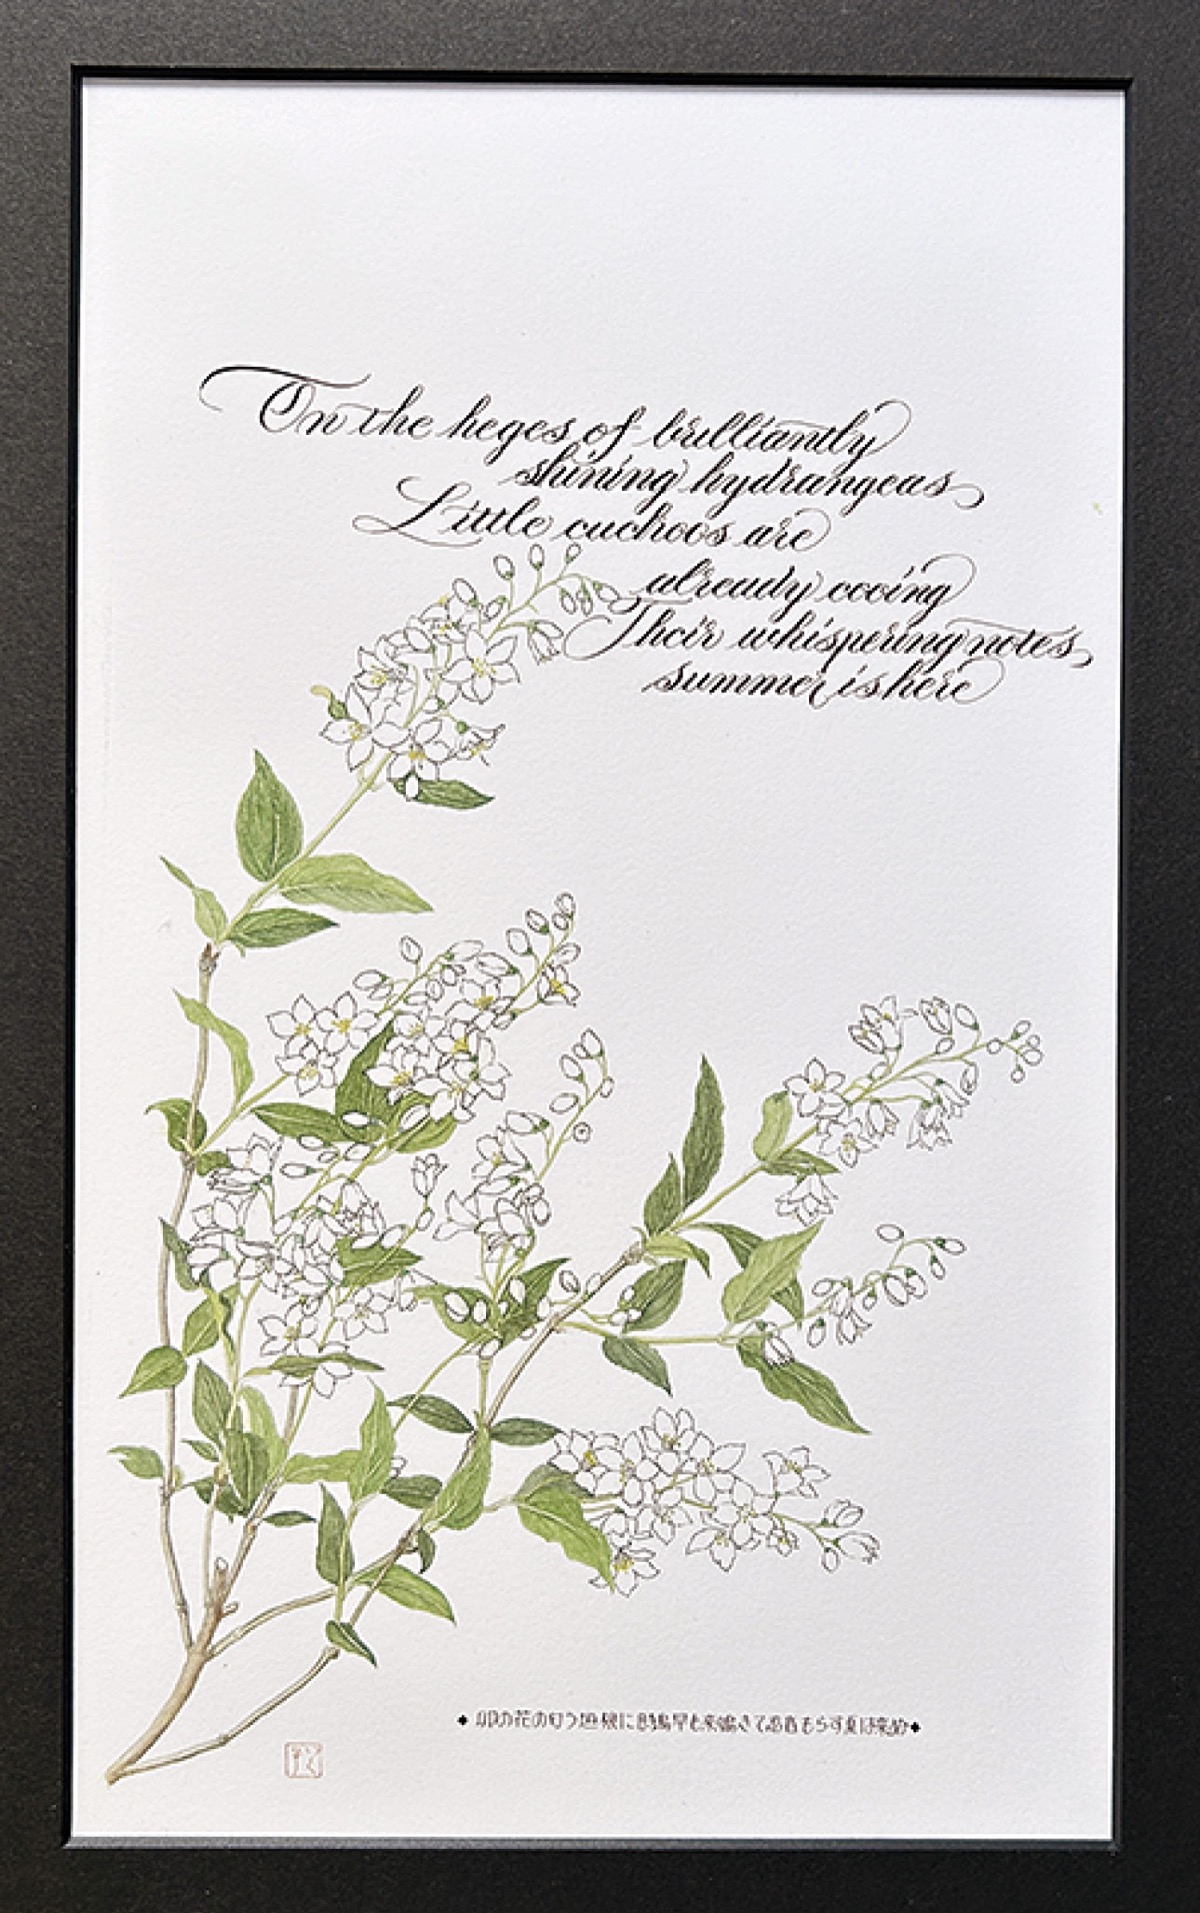 On the heges of brilliantly
shining hydrangeas
Little cuckoos are
already cooing
Their whispering notes
summer is here
◆ 卯の花の匂う垣根に時鳥早も来鳴きて忍音もらす夏は来ぬ◆